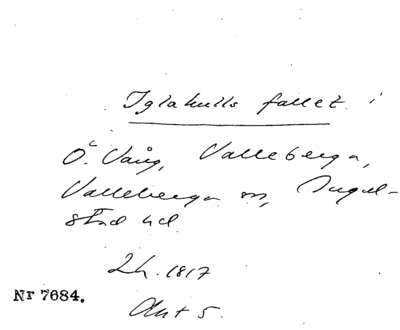 Iglakulls fallet i
Ö. Vång, Valleberga,
Valleberga sn, Ingel-
stad hd.
Lh. 1817
Nr 7684.
Akt 5.